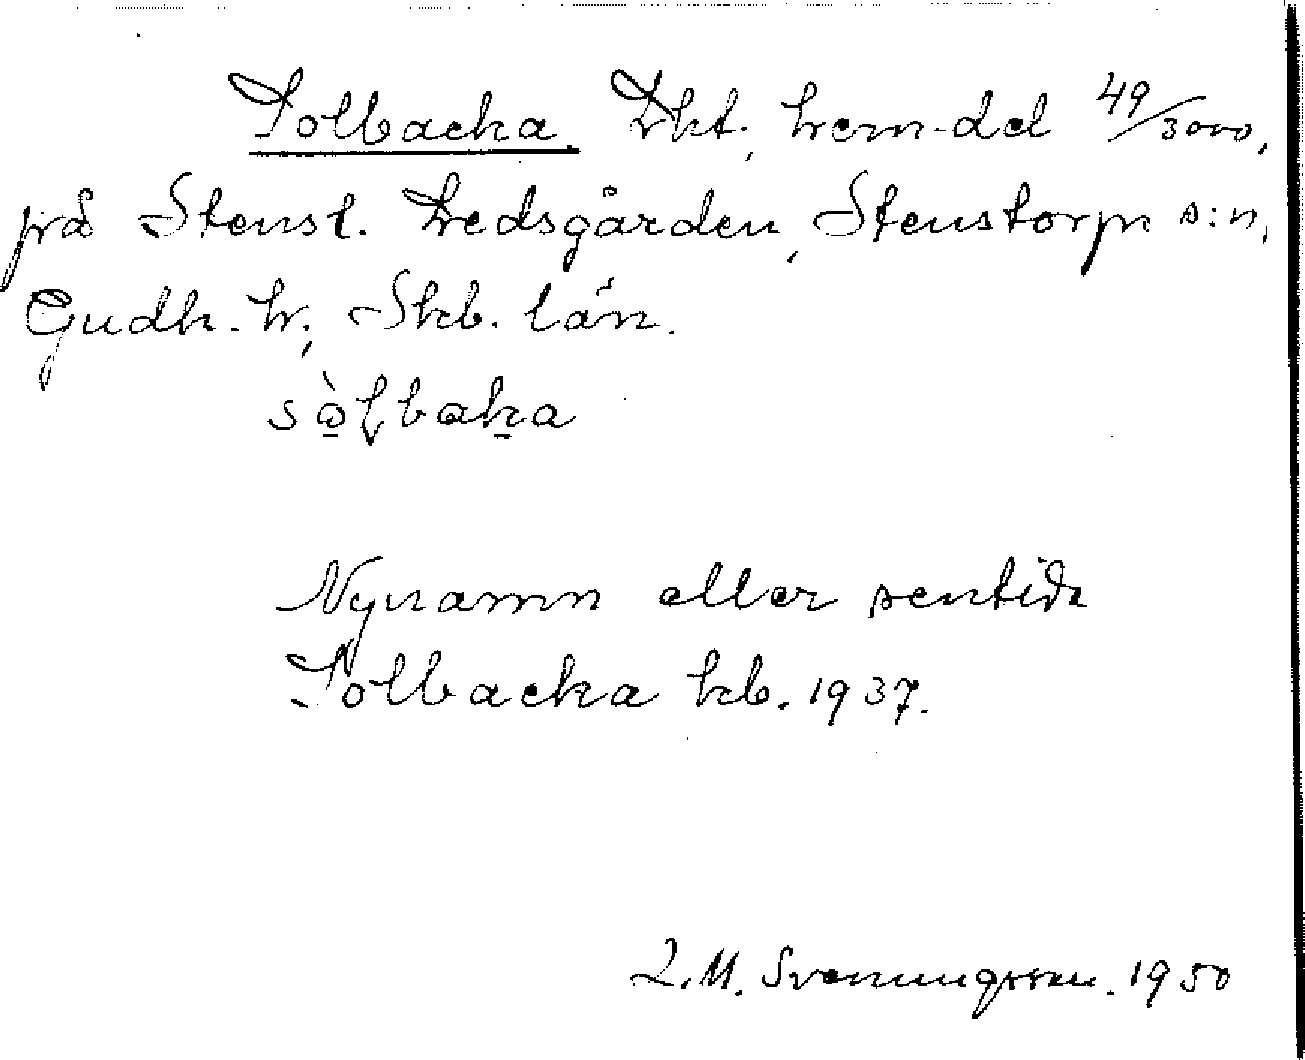 Solbacka Lht, hem-del 49/3000,
på Stenst. Bredsgården, Stenstorps s:n,
Gudh. hr, Skb. län.
sòlbaka
Nynamn eller sentida
Solbacka kb. 1937.
L.M. Svenungsson. 1950